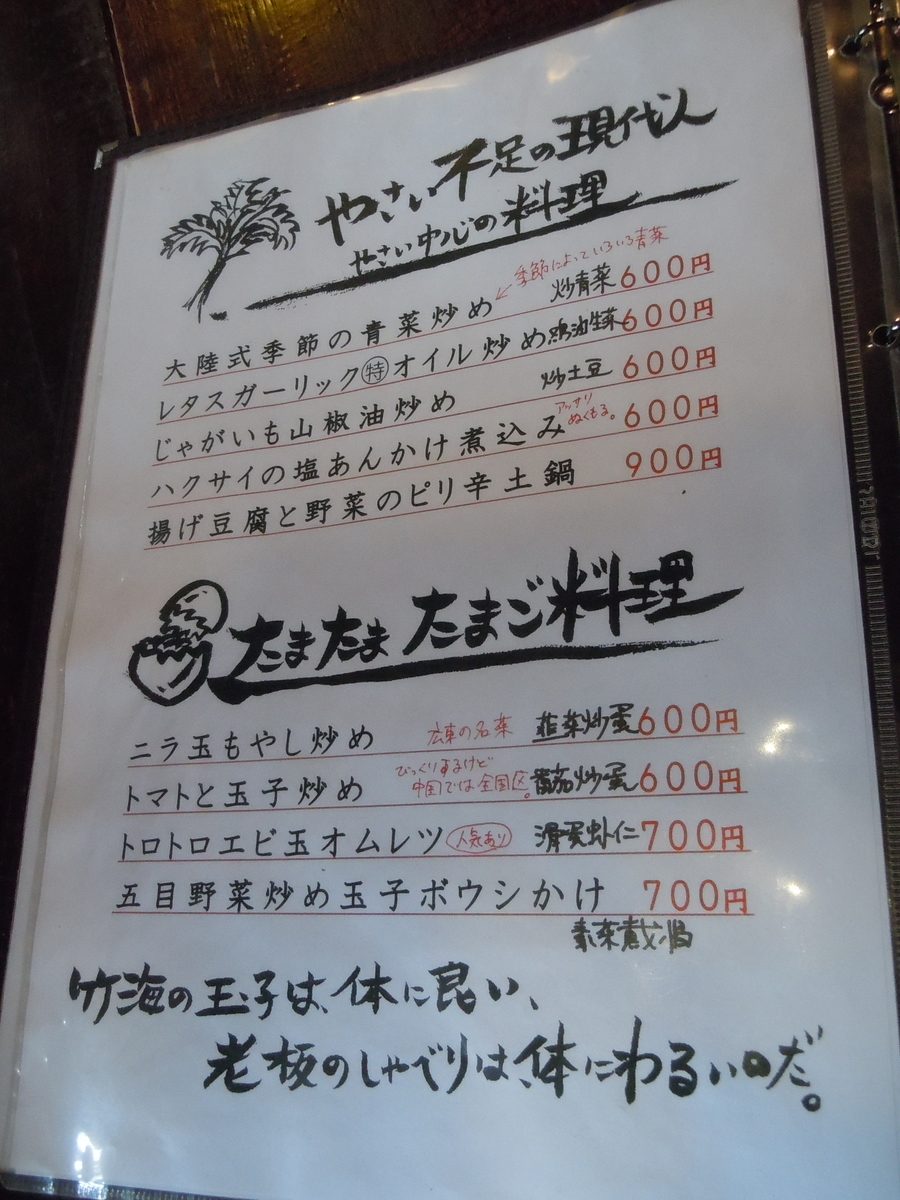 やさい不足の現代人
やさい中心の料理
季節によっていろいろ青菜
大陸式季節の青菜炒め 炒青菜 600円
レタスガーリック特オイル炒め 鶏油生菜 600円
じゃがいも山椒油炒め 炒土豆 600円
アッサリ
ぬくもる。
ハクサイの塩あんかけ煮込み 600円
揚げ豆腐と野菜のピリ辛土鍋 900円
たまたま たまご料理
ニラ玉もやし炒め 広東の名菜 韮菜炒蛋 600円
びっくりするけど
中国では全国区。
トマトと玉子炒め 蕃茄炒蛋 600円
トロトロエビ玉オムレツ 人気あり 滑蛋虾仁 700円
五目野菜炒め玉子ボウシかけ 700円
素菜戴帽
竹海の玉子は、体に良い、
老板のしゃべりは、体にわるいのだ。